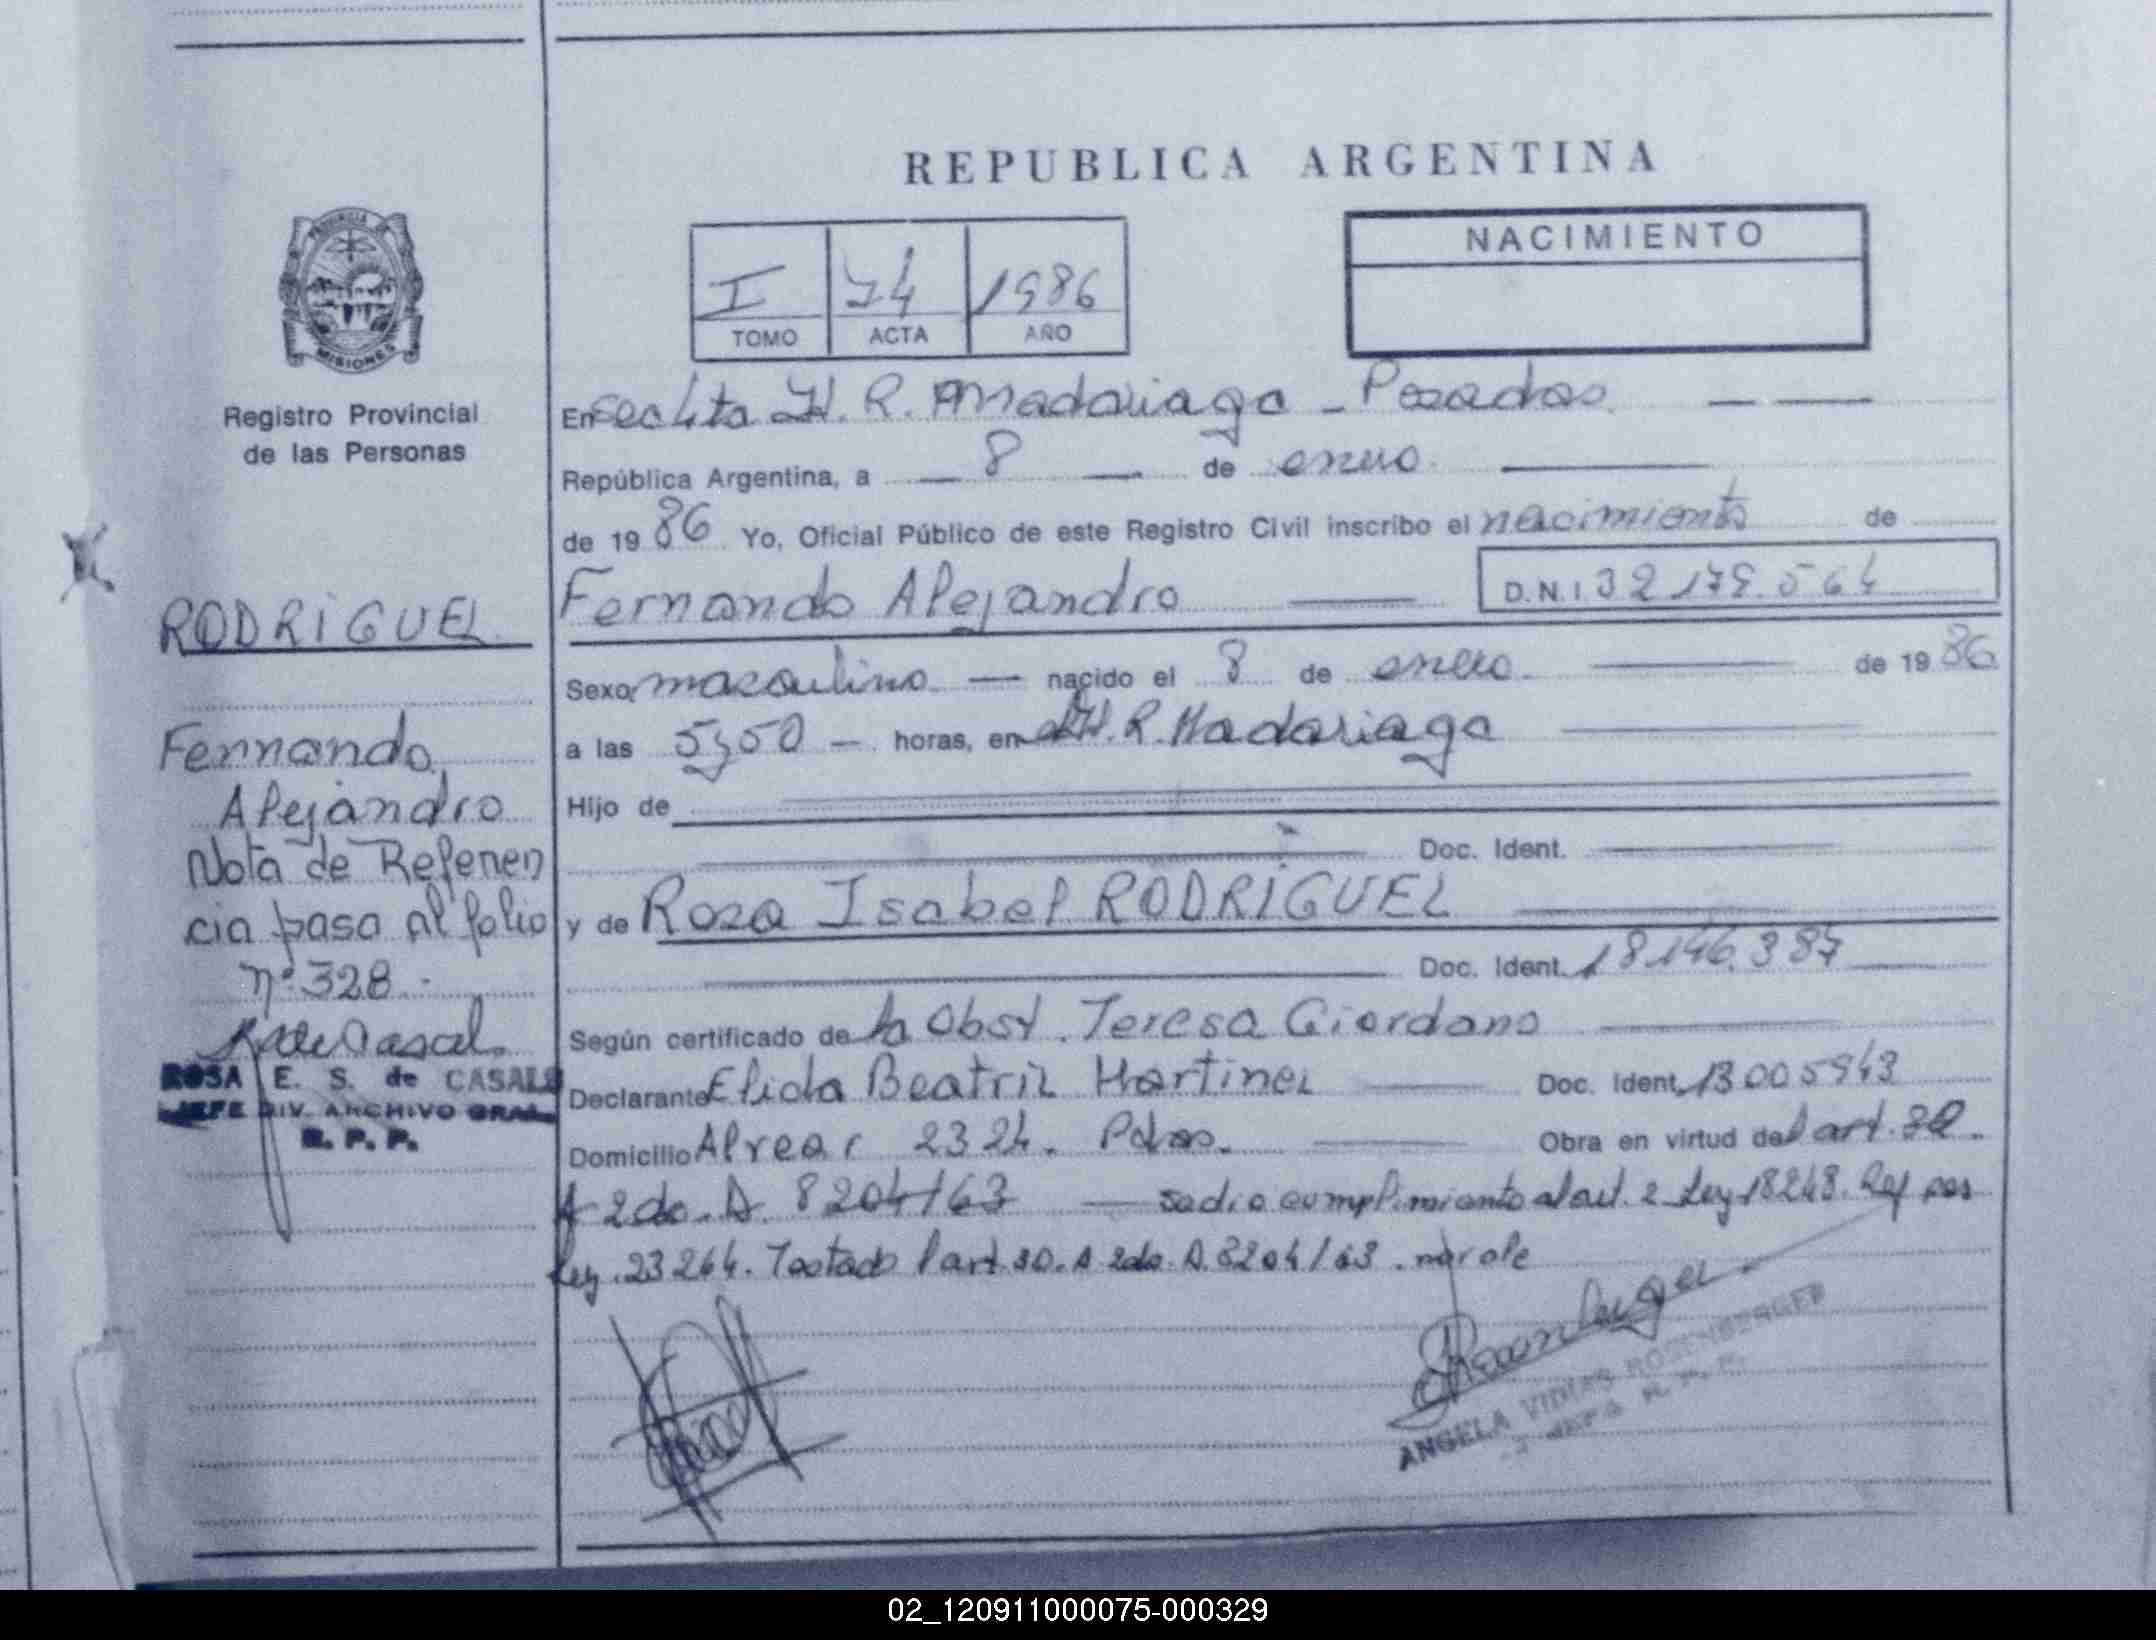 REPUBLICA ARGENTINA
PROVINCIA DE
MISIONES
Registro Provincial
de las Personas
I 74 1986
TOMO ACTA AÑO
NACIMIENTO
En secc 4ta H. R. Madariaga - Posadas
República Argentina, a 8 de enero
de 1986 Yo, Oficial Público de este Registro Civil inscribo el nacimiento de
Fernando Alejandro D.N.I 32.179.564
Sexo masculino nacido el 8 de enero de 1986
a las 5,50 horas, en H. R. Madariaga
Hijo de
Doc. Ident.
y de Rosa Isabel RODRIGUEZ
Doc. Ident. 18.146.387
Según certificado de la Obst. Teresa Giordano
Declarante Elida Beatriz Martinez Doc. Ident. 13005943
Domicilio Alvear 2324. Pdas. Obra en virtud del art. 30.
A 2do. D. 8204/63 se dio cumplimiento al art. 2 Ley 18248. Ref por
Ley. 23264. Testado l art. 30. A 2do. D. 8204/63. no vale
ANGELA VIDHAS ROSENBERGER
RODRIGUEZ
Fernando
Alejandro
Nota de Referen
cia pasa al folio
nº 328.-
ROSA E. S. de CASALS
JEFE DIV. ARCHIVO GRAL
R. P. P.
02_120911000075-000329